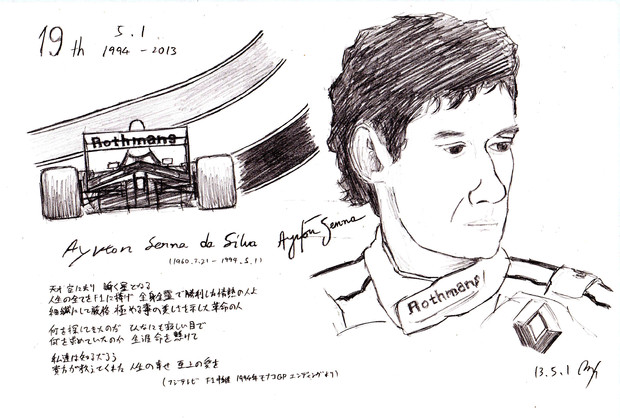 19th
5.1
1994 - 2013
Rothmans
Ayrton Senna da Silva
Ayrton Senna
(1960.3.21 - 1994.5.1)
Rothmans
人生の全てをF1に捧げ 全身全霊で勝利した情熱の人よ
繊細にして 極める事の美しさを示した革命の人
何を探していたのか
何を求めていたのか 生涯 命を懸けて
私達は知るだろう
貴方が教えてくれた 人生の幸せ 至上の愛を
(フジテレビ F1中継 1994年モナコGP エンディングより)
13.5.1